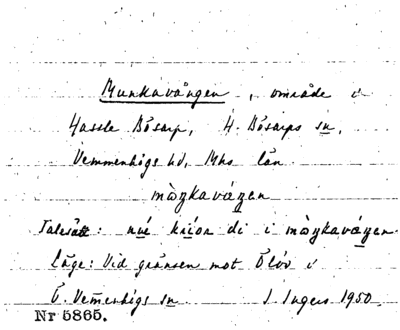 Munkavången, område i
Hassle Bösarp, H. Bösarps sn,
Vemmenhögs hd, Mhs län
mòŋkaváŋen
Talesätt: nué kriöa di i mòŋkaváŋen.
Läge: Vid gränsen mot Ölöv i
Ö. Vemmenhögs sn J. Ingers 1950.
Nr 5865.